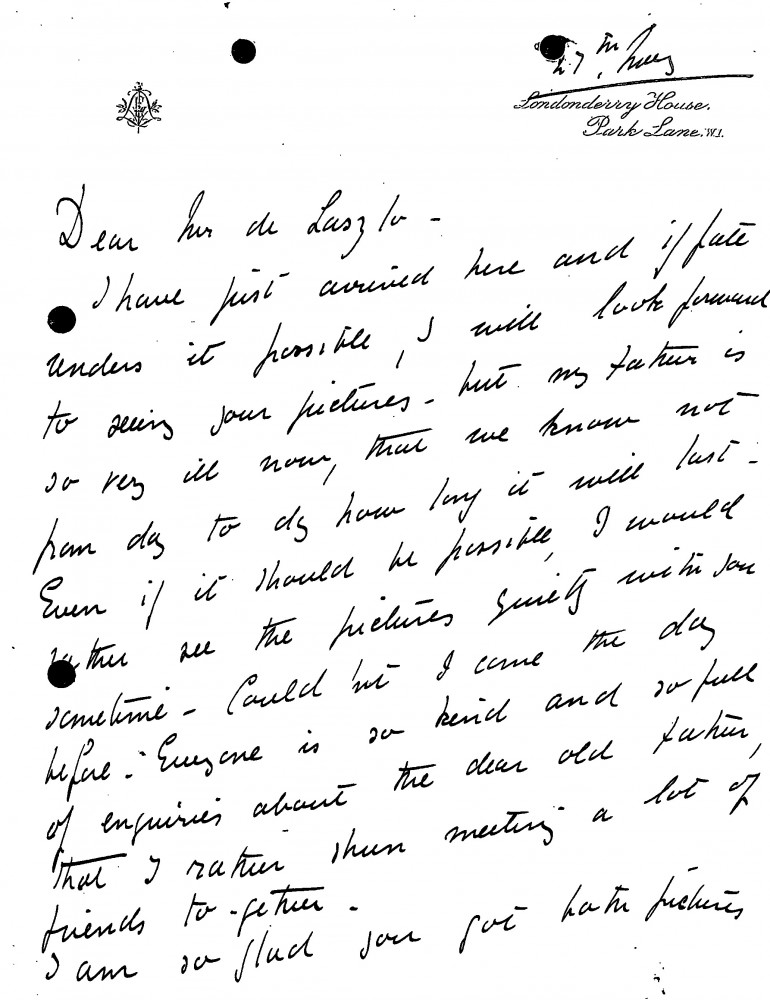 27th May
Londonderry House,
Park Lane. W.1.
Dear Mr de Laszlo -
I have just arrived here and if fate
renders it possible, I will look forward
to seeing your pictures - but my father is
so very ill now, that we know not
from day to day how long it will last -
Even if it should be possible, I would
rather see the pictures quietly with you
sometime - Could 'nt I come the day
before - Everyone is so kind and so full
of enquiries about the dear old father,
that I rather shun meeting a lot of
friends to-gether -
I am so glad you got both pictures